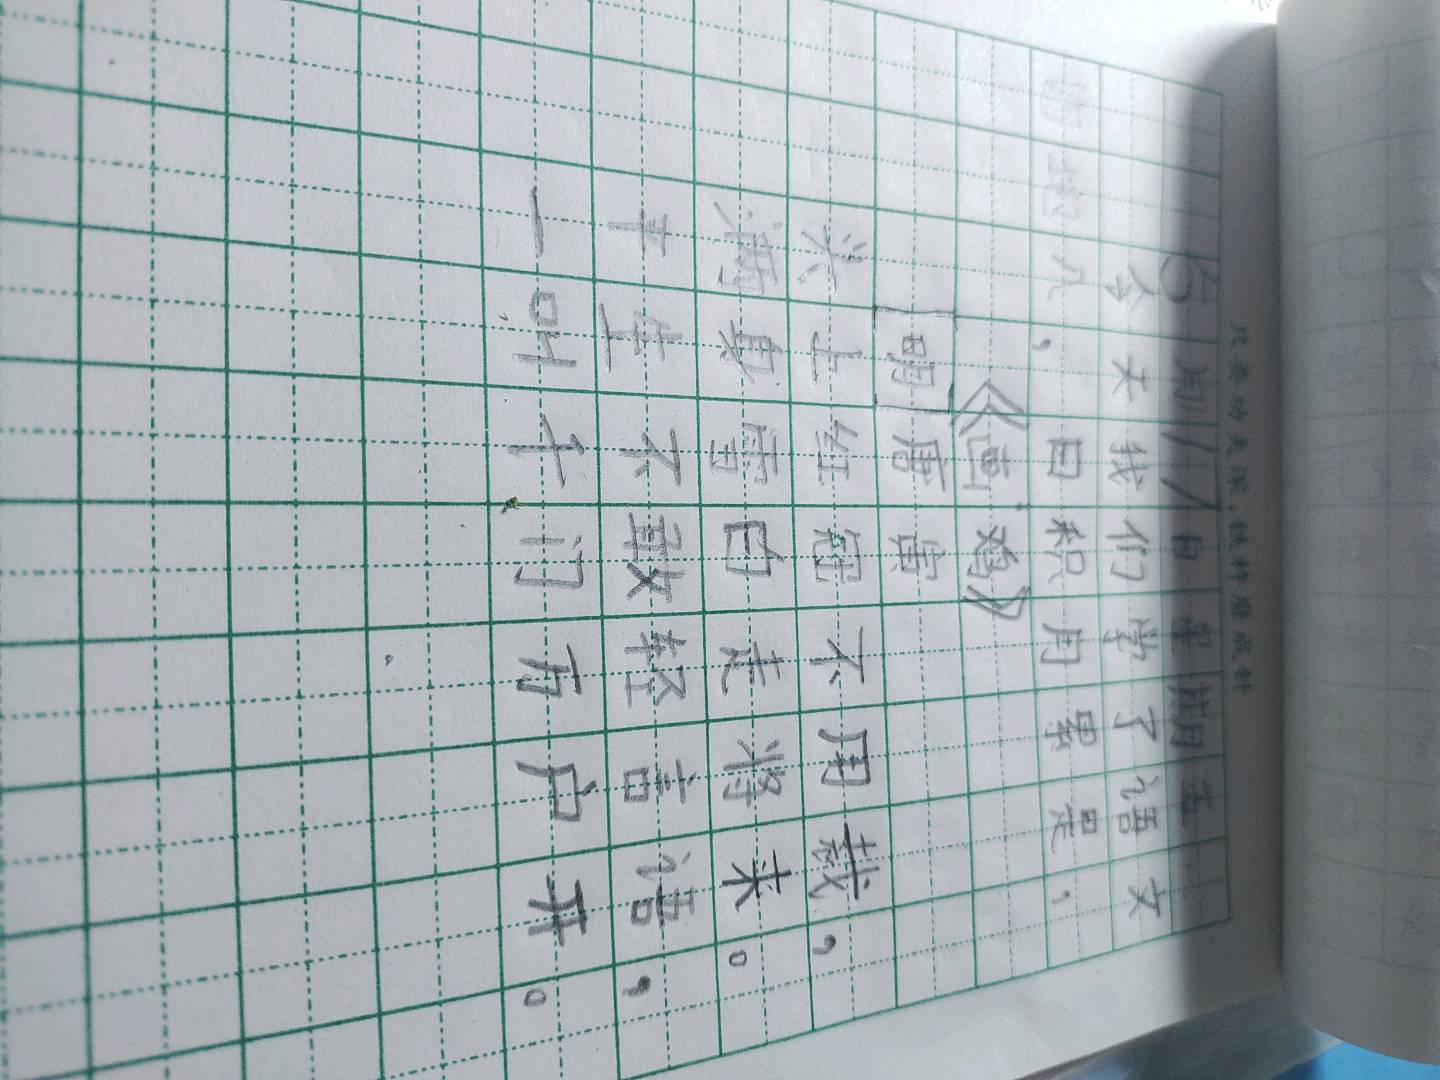 只要功夫深，铁杵磨成针
15周 日 星期五
今天我们学了语文
的 八，日积月累是，
《画鸡》
[明]唐寅
头上红冠不用裁，
满身雪白走将来。
平生不敢轻言语，
一叫千门万户开。